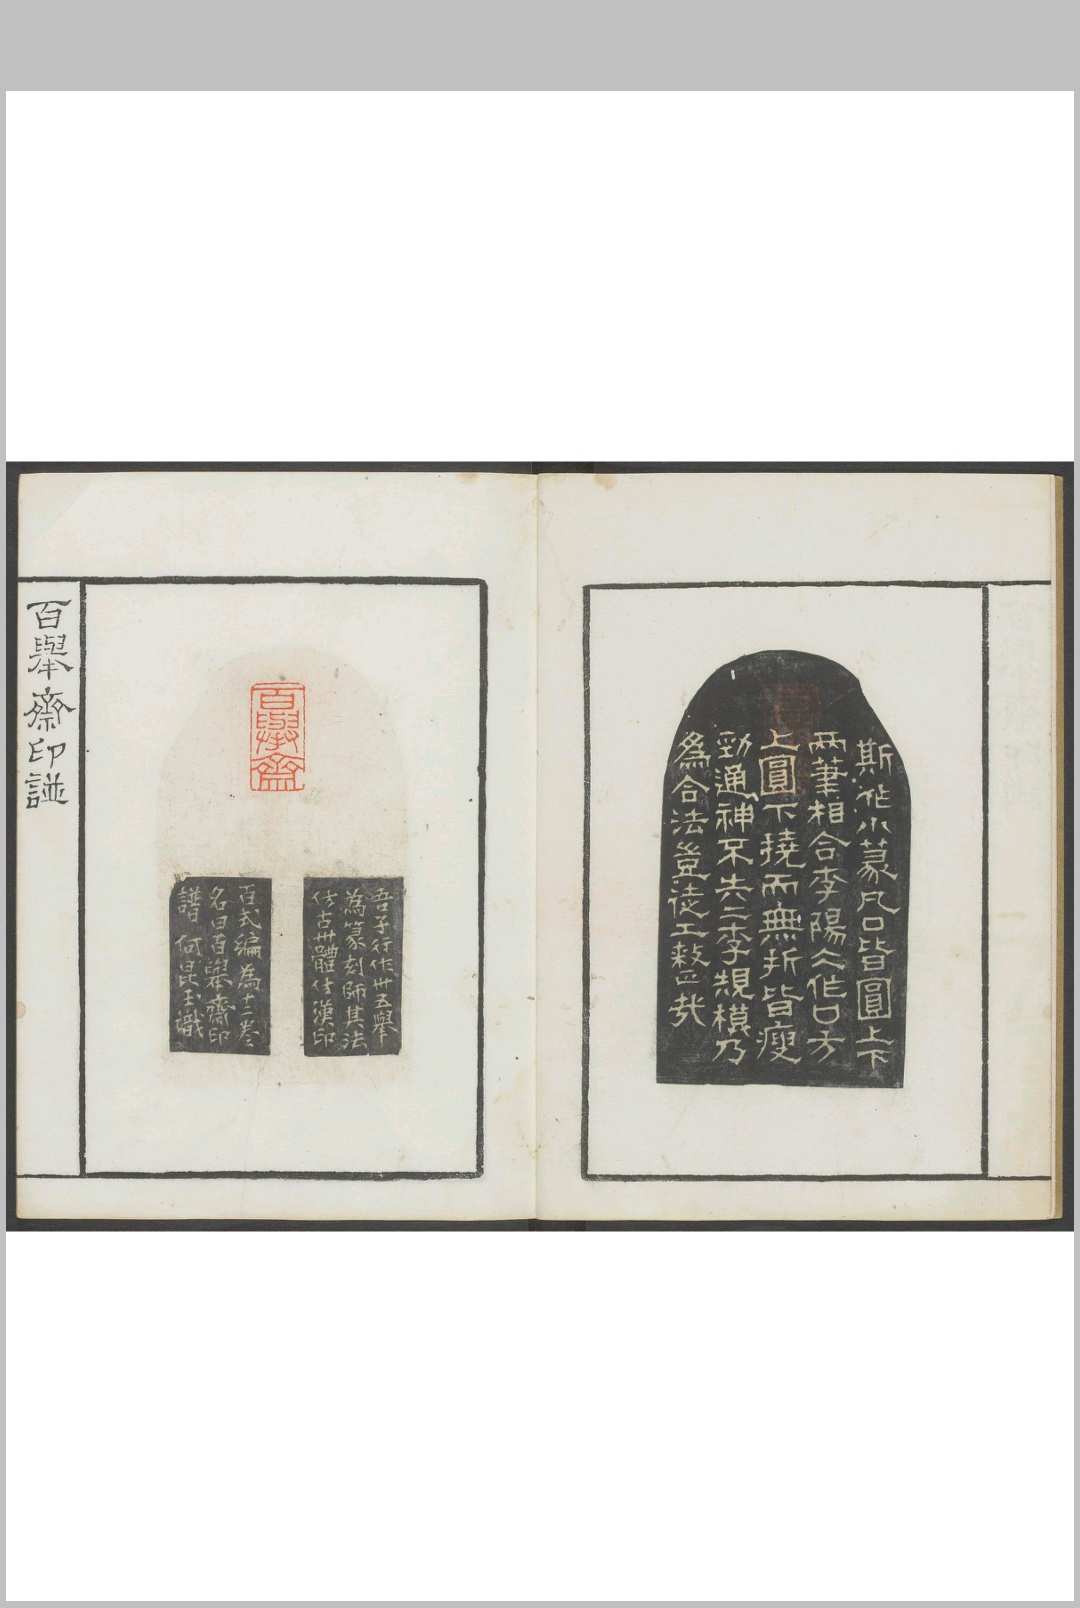 斯作小篆凡口皆圓上下
兩筆相合李陽冰作口方
上圓下撓而無折皆瘦
勁通神不失二李規模乃
為合法豈徒工敕正哉
百舉齋
吾子行作卅五舉
為篆刻師其法
仿古卅體仿漢印
百式編為十二卷
名曰百舉齋印
譜 何昆玉識
百舉齋印譜